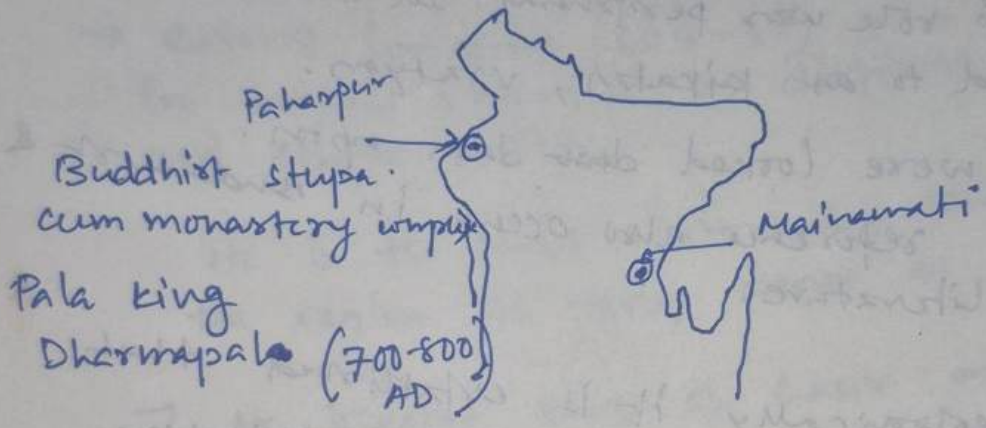 Paharpur
Buddhist stupa.
cum monastery complex
Pala king
Dharmapala (700-800)
AD
Mainamati